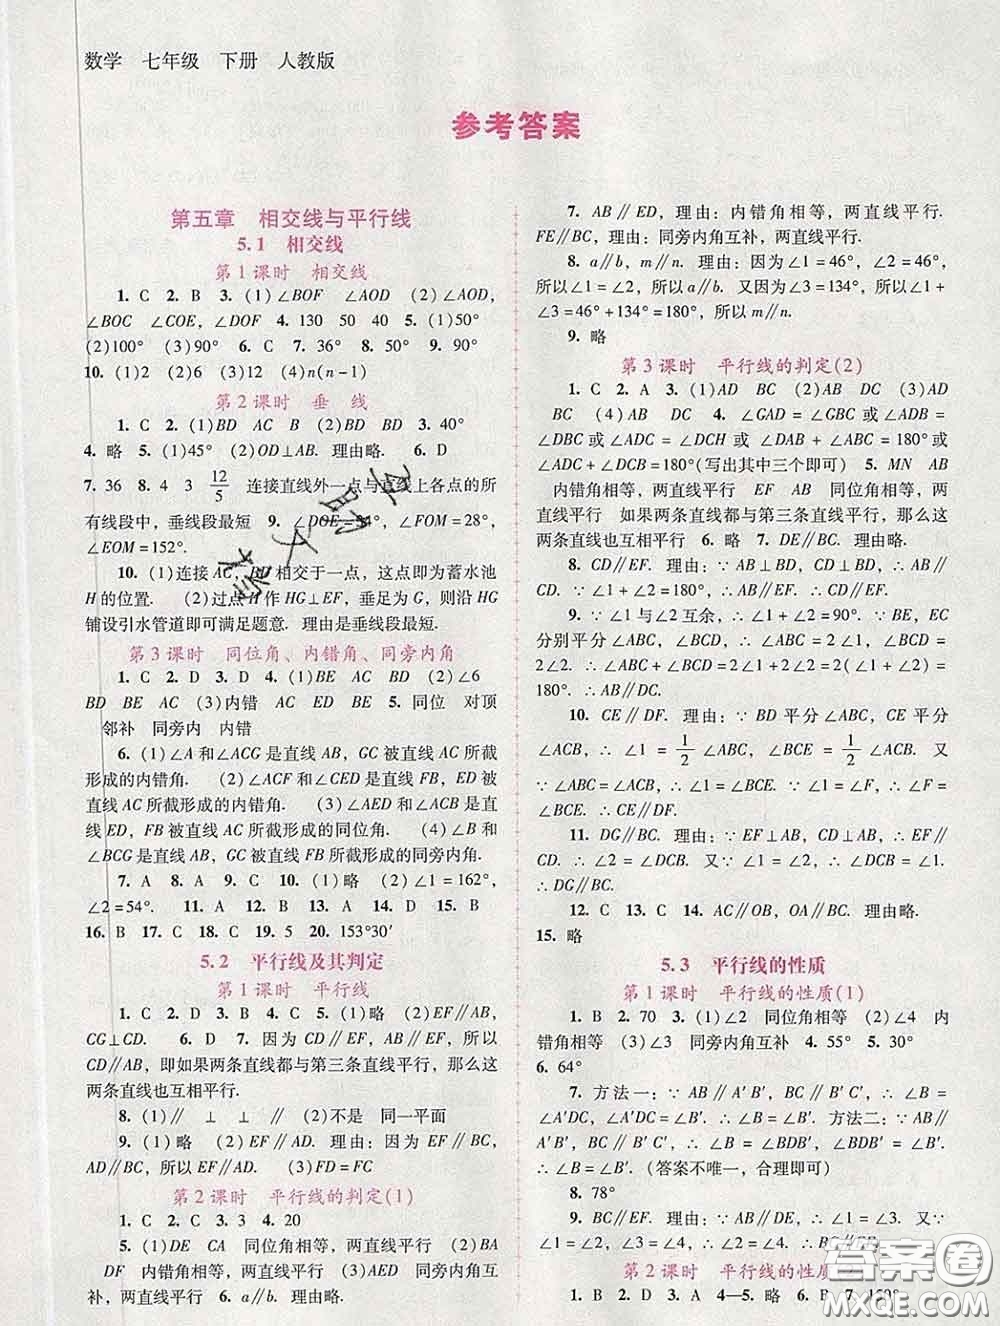 数学 七年级 下册 人教版
参考答案
第五章 相交线与平行线
5.1 相交线
第1课时 相交线
1. C 2. B 3. (1)∠BOF ∠AOD (2)∠AOD,
∠BOC ∠COE,∠DOF 4. 130 50 40 5. (1)50°
(2)100° (3)90° 6. C 7. 36° 8. 50° 9. 90°
10. (1)2 (2)6 (3)12 (4)n(n-1)
第2课时 垂 线
1. C 2. (1)BD AC B (2)BD BD 3. 40°
4. 略 5. (1)45° (2)OD⊥AB. 理由略. 6. D
7. 36 8. 4 3 12/5 连接直线外一点与直线上各点的所
有线段中,垂线段最短 9. ∠DOE=34°,∠FOM=28°,
∠EOM=152°.
10. (1)连接AC, 相交于一点,这点即为蓄水池
H的位置. (2)过点H作HG⊥EF,垂足为G,则沿HG
铺设引水管道即可满足题意. 理由是垂线段最短.
第3课时 同位角、内错角、同旁内角
1. C 2. D 3. D 4. (1)BE AC BD (2)∠6
BD BE AC (3)内错 AC ED BE 5. 同位 对顶
邻补 同旁内 内错
6. (1)∠A和∠ACG是直线AB,GC被直线AC所截
形成的内错角. (2)∠ACF和∠CED是直线FB,ED被
直线AC所截形成的内错角. (3)∠AED和∠ACB是直
线ED,FB被直线AC所截形成的同位角. (4)∠B和
∠BCG是直线AB,GC被直线FB所截形成的同旁内角.
7. A 8. A 9. C 10. (1)略 (2)∠1=162°,
∠2=54°. 11. A 12. B 13. A 14. A 15. B
16. B 17. C 18. C 19. 5 20. 153°30′
5.2 平行线及其判定
第1课时 平行线
1. C 2. D 3. D 4. C 5. (1)略 (2)EF∥AB,
CG⊥CD. 6. D 7. 因为CD∥EF,AB∥EF,所以
CD∥AB,即如果两条直线都与第三条直线平行,那么这
两条直线也互相平行.
8. (1)∥ ⊥ ⊥ ∥ (2)不是 同一平面
9. (1)略 (2)EF∥AD. 理由:因为EF∥BC,
AD∥BC,所以EF∥AD. (3)FD=FC
第2课时 平行线的判定(1)
1. C 2. C 3. 3 4. 20
5. (1)DE CA 同位角相等,两直线平行 (2)BA
DF 内错角相等,两直线平行 (3)AED 同旁内角互
补,两直线平行 6. a∥b. 理由略.
7. AB∥ED,理由:内错角相等,两直线平行.
FE∥BC,理由:同旁内角互补,两直线平行.
8. a∥b,m∥n. 理由:因为∠1=46°,∠2=46°,
所以∠1=∠2,所以a∥b. 又因为∠3=134°,所以∠1+
∠3=46°+134°=180°,所以m∥n.
9. 略
第3课时 平行线的判定(2)
1. C 2. A 3. (1)AD BC (2)AB DC (3)AD
BC (4)AB DC 4. ∠GAD=∠GBC或∠ADB=
∠DBC或∠ADC=∠DCH或∠DAB+∠ABC=180°或
∠ADC+∠DCB=180°(写出其中三个即可) 5. MN AB
内错角相等,两直线平行 EF AB 同位角相等,两
直线平行 如果两条直线都与第三条直线平行,那么这
两条直线也互相平行 6. 略 7. DE∥BC. 理由略.
8. CD∥EF. 理由:∵AB⊥BD,CD⊥BD,∴AB∥
CD. ∵∠1+∠2=180°,∴AB∥EF. ∴CD∥EF.
9. ∵∠1与∠2互余,∴∠1+∠2=90°. ∵BE,EC
分别平分∠ABC,∠BCD,∴∠ABC=2∠1,∠BCD=
2∠2. ∴∠ABC+∠BCD=2∠1+2∠2=2(∠1+∠2)=
180°. ∴AB∥DC.
10. CE∥DF. 理由:∵BD平分∠ABC,CE平分
∠ACB,∴∠1=1/2∠ABC,∠BCE=1/2∠ACB. 又
∵∠ABC=∠ACB,∴∠1=∠BCE. ∵∠1=∠F,∴∠F=
∠BCE. ∴CE∥DF.
11. DG∥BC. 理由:∵EF⊥AB,CD⊥AB,∴EF∥
CD. ∴∠2=∠DCB. 又∵∠1=∠2,∴∠DCB=∠1.
∴DG∥BC.
12. C 13. C 14. AC∥OB,OA∥BC. 理由略.
15. 略
5.3 平行线的性质
第1课时 平行线的性质(1)
1. B 2. 70 3. (1)∠2 同位角相等 (2)∠4 内
错角相等 (3)∠3 同旁内角互补 4. 55° 5. 30°
6. 64°
7. 方法一:∵AB∥A′B′,BC∥B′C′,∴∠B=
∠A′DC,∠A′DC=∠B′. ∴∠B=∠B′. 方法二:∵AB∥
A′B′,BC∥B′C′,∴∠B=∠BDB′,∠BDB′=∠B′.
∴∠B=∠B′. (答案不唯一,合理即可)
8. 78°
9. BC∥EF. 理由:∵AB∥DE,∴∠1=∠3. 又∵
∠1=∠2,∠3=∠4,∴∠2=∠4. ∴BC∥EF.
第2课时 平行线的性质
1. B 2. D 3. D 4—5. 略 6. B 7.
答案圈
MXQE.COM